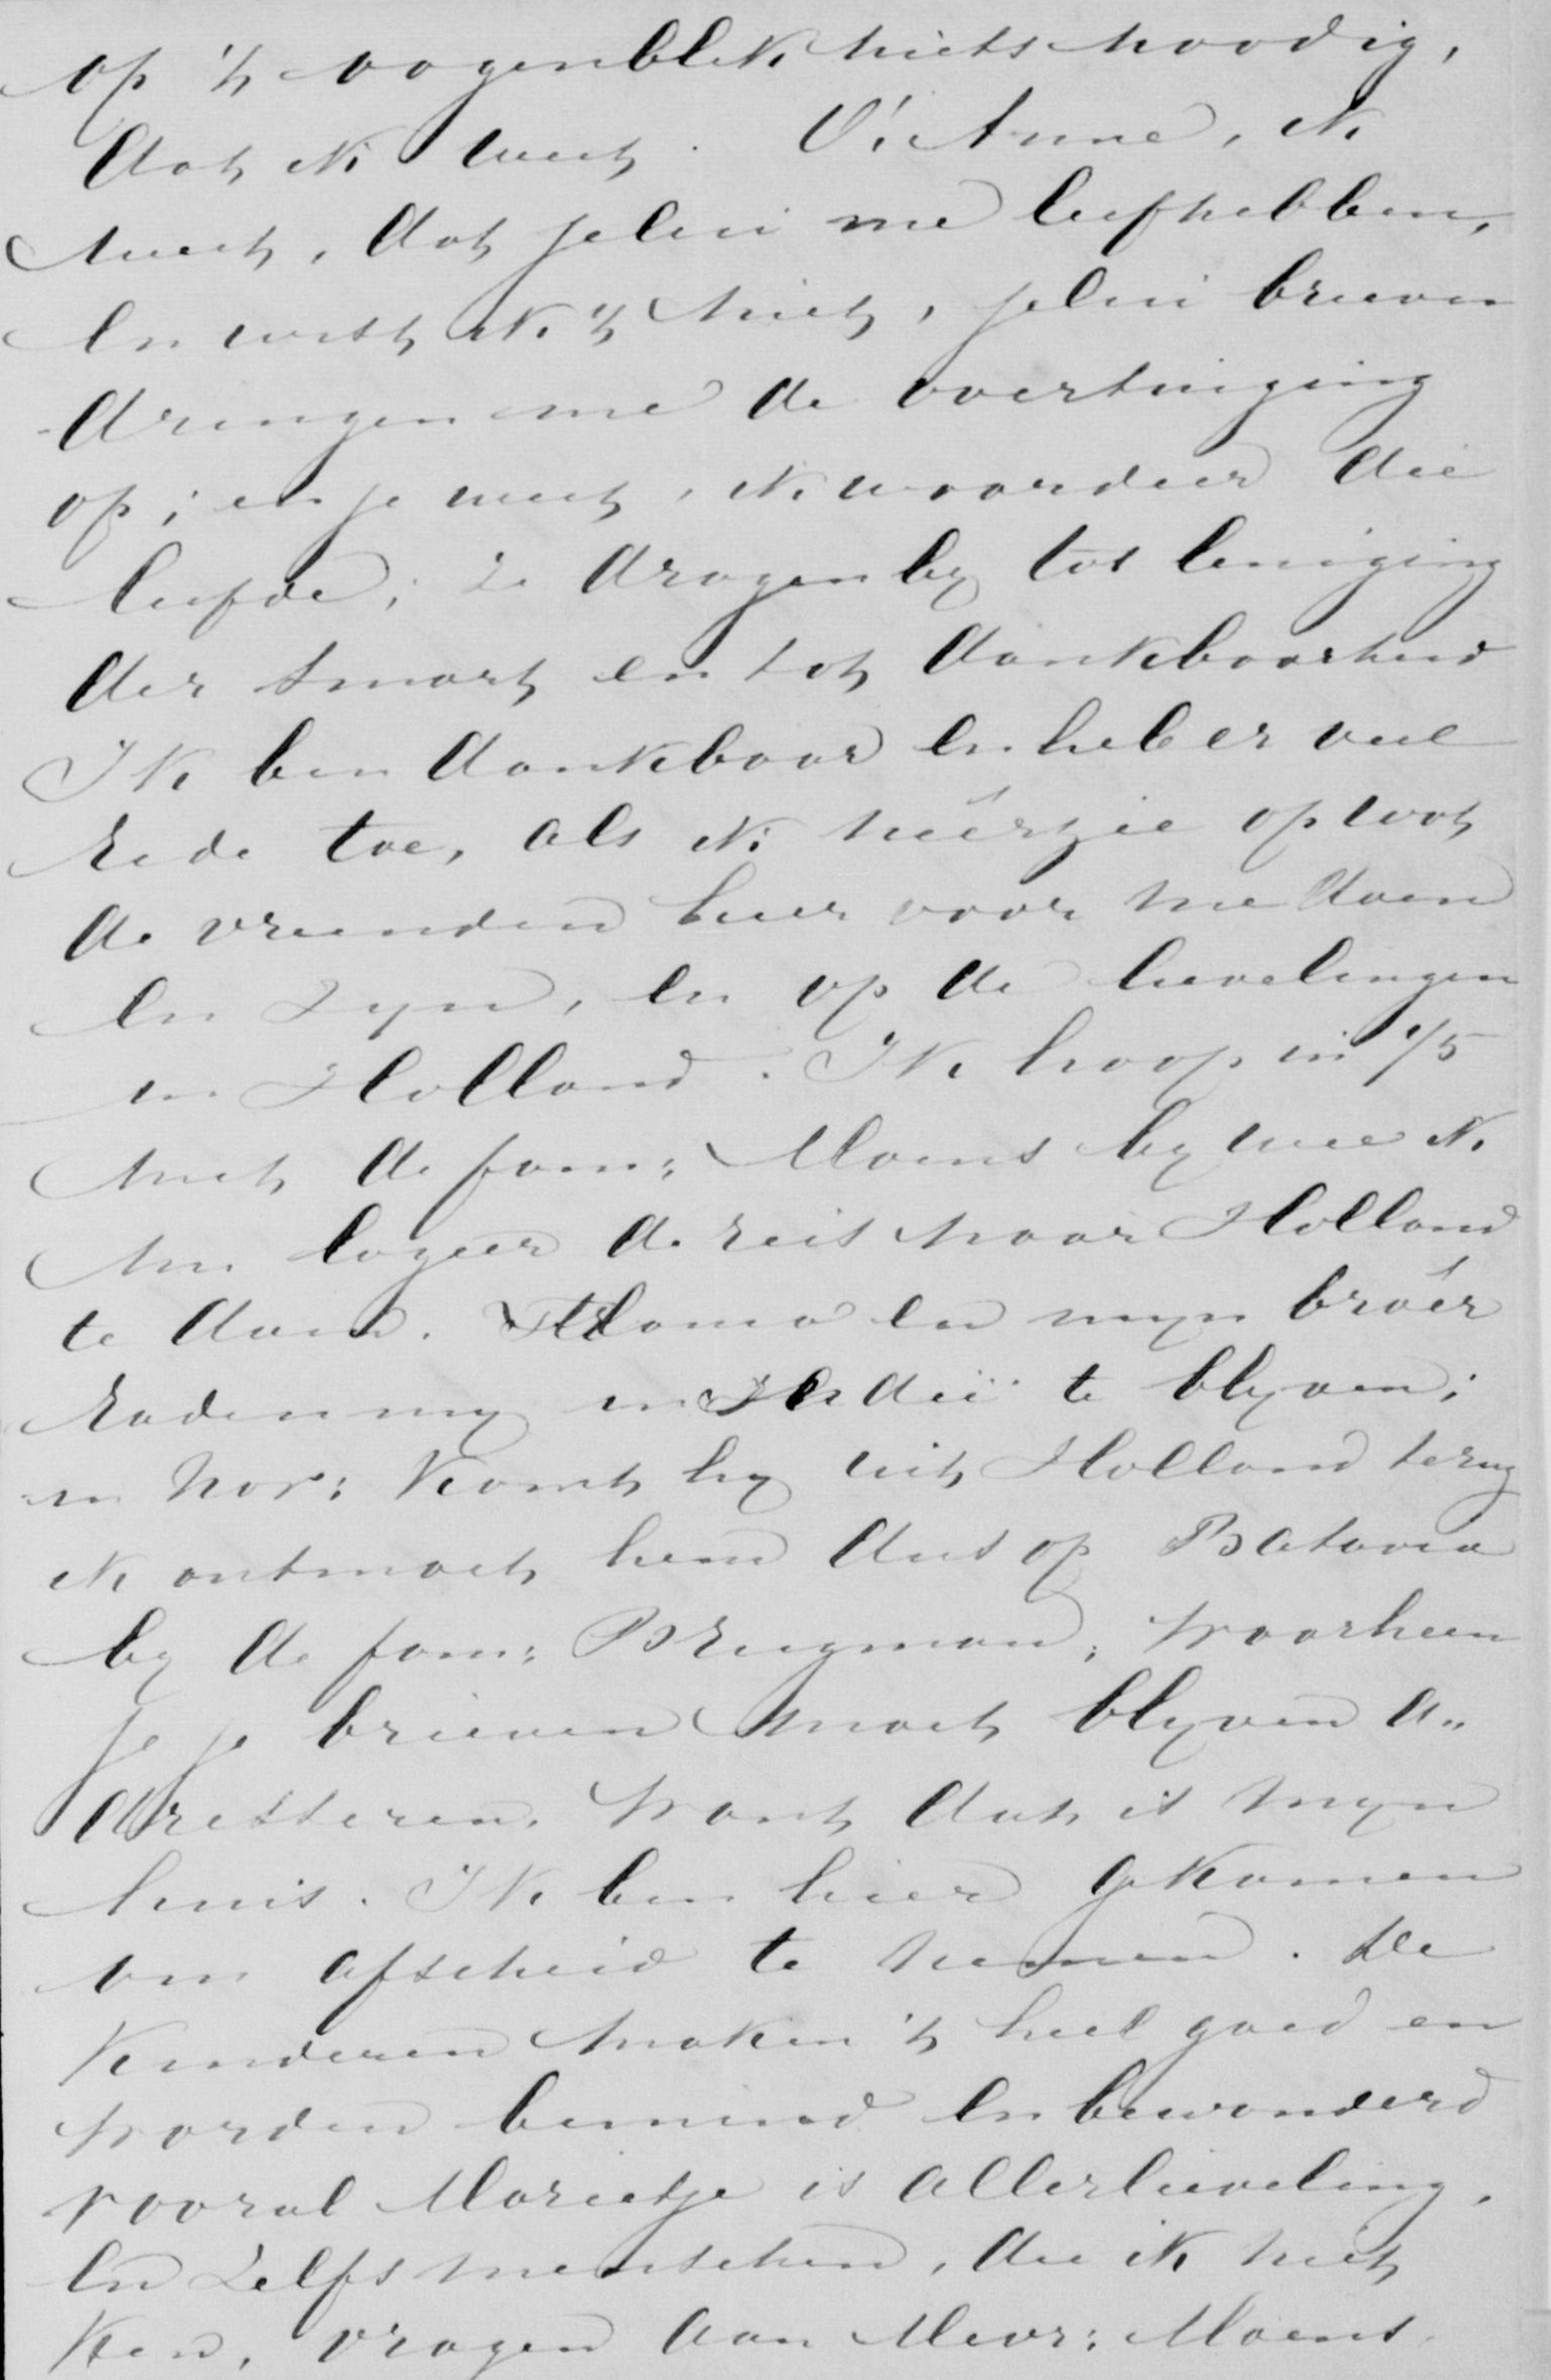 op 't oogenblik niets noodig,
dat ik weet. O! Anne, ik
weet, dat jelui me liefhebben,
en wist ik 't niet, jelui brieven
dringen me de overtuiging
op; en je weet, ik waardeer die
liefde; ze dragen by tot leniging
der smart en tot dankbaarheid
Ik ben dankbaar en heb er veel
rede toe, als ik neêrzie op wat
de vrienden hier voor me doen
en zyn, en op de lievelingen
in Holland. Ik hoop in 1/5
met de fam: Moens by wie ik
nu logeer de reis naar Holland
te doen. Mama en myn broêr
raden my in Indië te blyven;
in Nov: komt hy uit Holland terug
ik ontmoet hem dus op Batavia
by de fam: Brugman, waarheen
je je brieven moet blyven a„
dresseren. Want dat is myn
huis. Ik ben hier gekomen
om afscheid te nemen. De
kinderen maken 't heel goed en
worden bemind en bewonderd
vooral Marietje is allerlieveling.
En zelfs menschen, die ik niet
ken, vragen aan Mevr: Moens